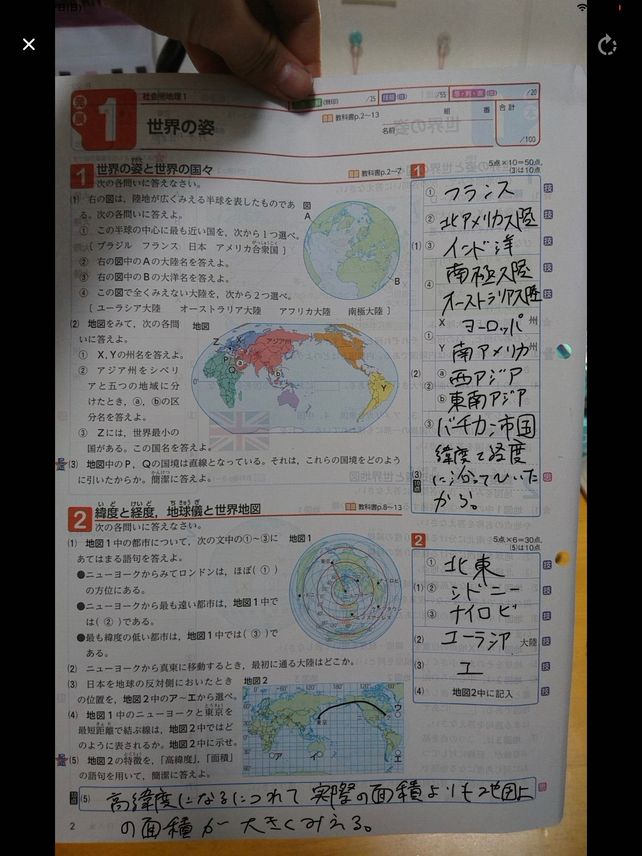 1
社会 地理1
/25
/55
/20
世界の姿
教科書p.2~13
名前
組
番
合計
/100
1 世界の姿と世界の国々
教科書p.2~7
次の各問いに答えなさい。
(1) 右の図は，陸地が広くみえる半球を表したものであ
る。次の各問いに答えよ。
① この半球の中心に最も近い国を，次から1つ選べ。
〔 ブラジル フランス 日本 アメリカ合衆国 〕
② 右の図中のAの大陸名を答えよ。
③ 右の図中のBの大洋名を答えよ。
④ この図で全くみえない大陸を，次から2つ選べ。
〔 ユーラシア大陸 オーストラリア大陸 アフリカ大陸 南極大陸 〕
図
A
B
(2) 地図をみて，次の各問
いに答えよ。
① X，Yの州名を答えよ。
② アジア州をシベリ
アと五つの地域に分
けたとき，ⓐ，ⓑの区
分名を答えよ。
③ Zには，世界最小の
国がある。この国名を答えよ。
地図
Z
X
アジア州
P
Q
ⓐ
ⓑ
Y
0°
(3) 地図中のP，Qの国境は直線となっている。それは，これらの国境をどのよう
に引いたからか。簡潔に答えよ。
2 緯度と経度，地球儀と世界地図
いど けいど ちきゅうぎ
教科書p.8~13
次の各問いに答えなさい。
(1) 地図1中の都市について，次の文中の①~③に
あてはまる語句を答えよ。
●ニューヨークからみてロンドンは，ほぼ( ① )
の方位にある。
●ニューヨークから最も遠い都市は，地図1中で
は( ② )である。
●最も緯度の低い都市は，地図1中では( ③ )で
ある。
地図1
(2) ニューヨークから真東に移動するとき，最初に通る大陸はどこか。
(3) 日本を地球の反対側においたとき
の位置を，地図2中のア~エから選べ。
(4) 地図1中のニューヨークと東京を
最短距離で結ぶ線は，地図2中ではど
のように表されるか。地図2中に示せ。
(5) 地図2の特徴を，「高緯度」，「面積」
の語句を用いて，簡潔に答えよ。
地図2
東京
ア
イ
ウ
エ
1
5点×10=50点，
(3)は10点
(1)
① フランス
② 北アメリカ大陸
③ インド洋
④ 南極大陸
オーストラリア大陸
(2)
① X ヨーロッパ 州
Y 南アメリカ 州
② ⓐ 西アジア
ⓑ 東南アジア
③ バチカン市国
(3) 緯度と経度
に沿ってひいた
から。
2
5点×6=30点，
(5)は10点
(1)
① 北東
② シドニー
③ ナイロビ
(2) ユーラシア 大陸
(3) エ
(4) 地図2中に記入
(5) 高緯度になるにつれて 実際の面積よりも地図上
の面積が大きくみえる。
2